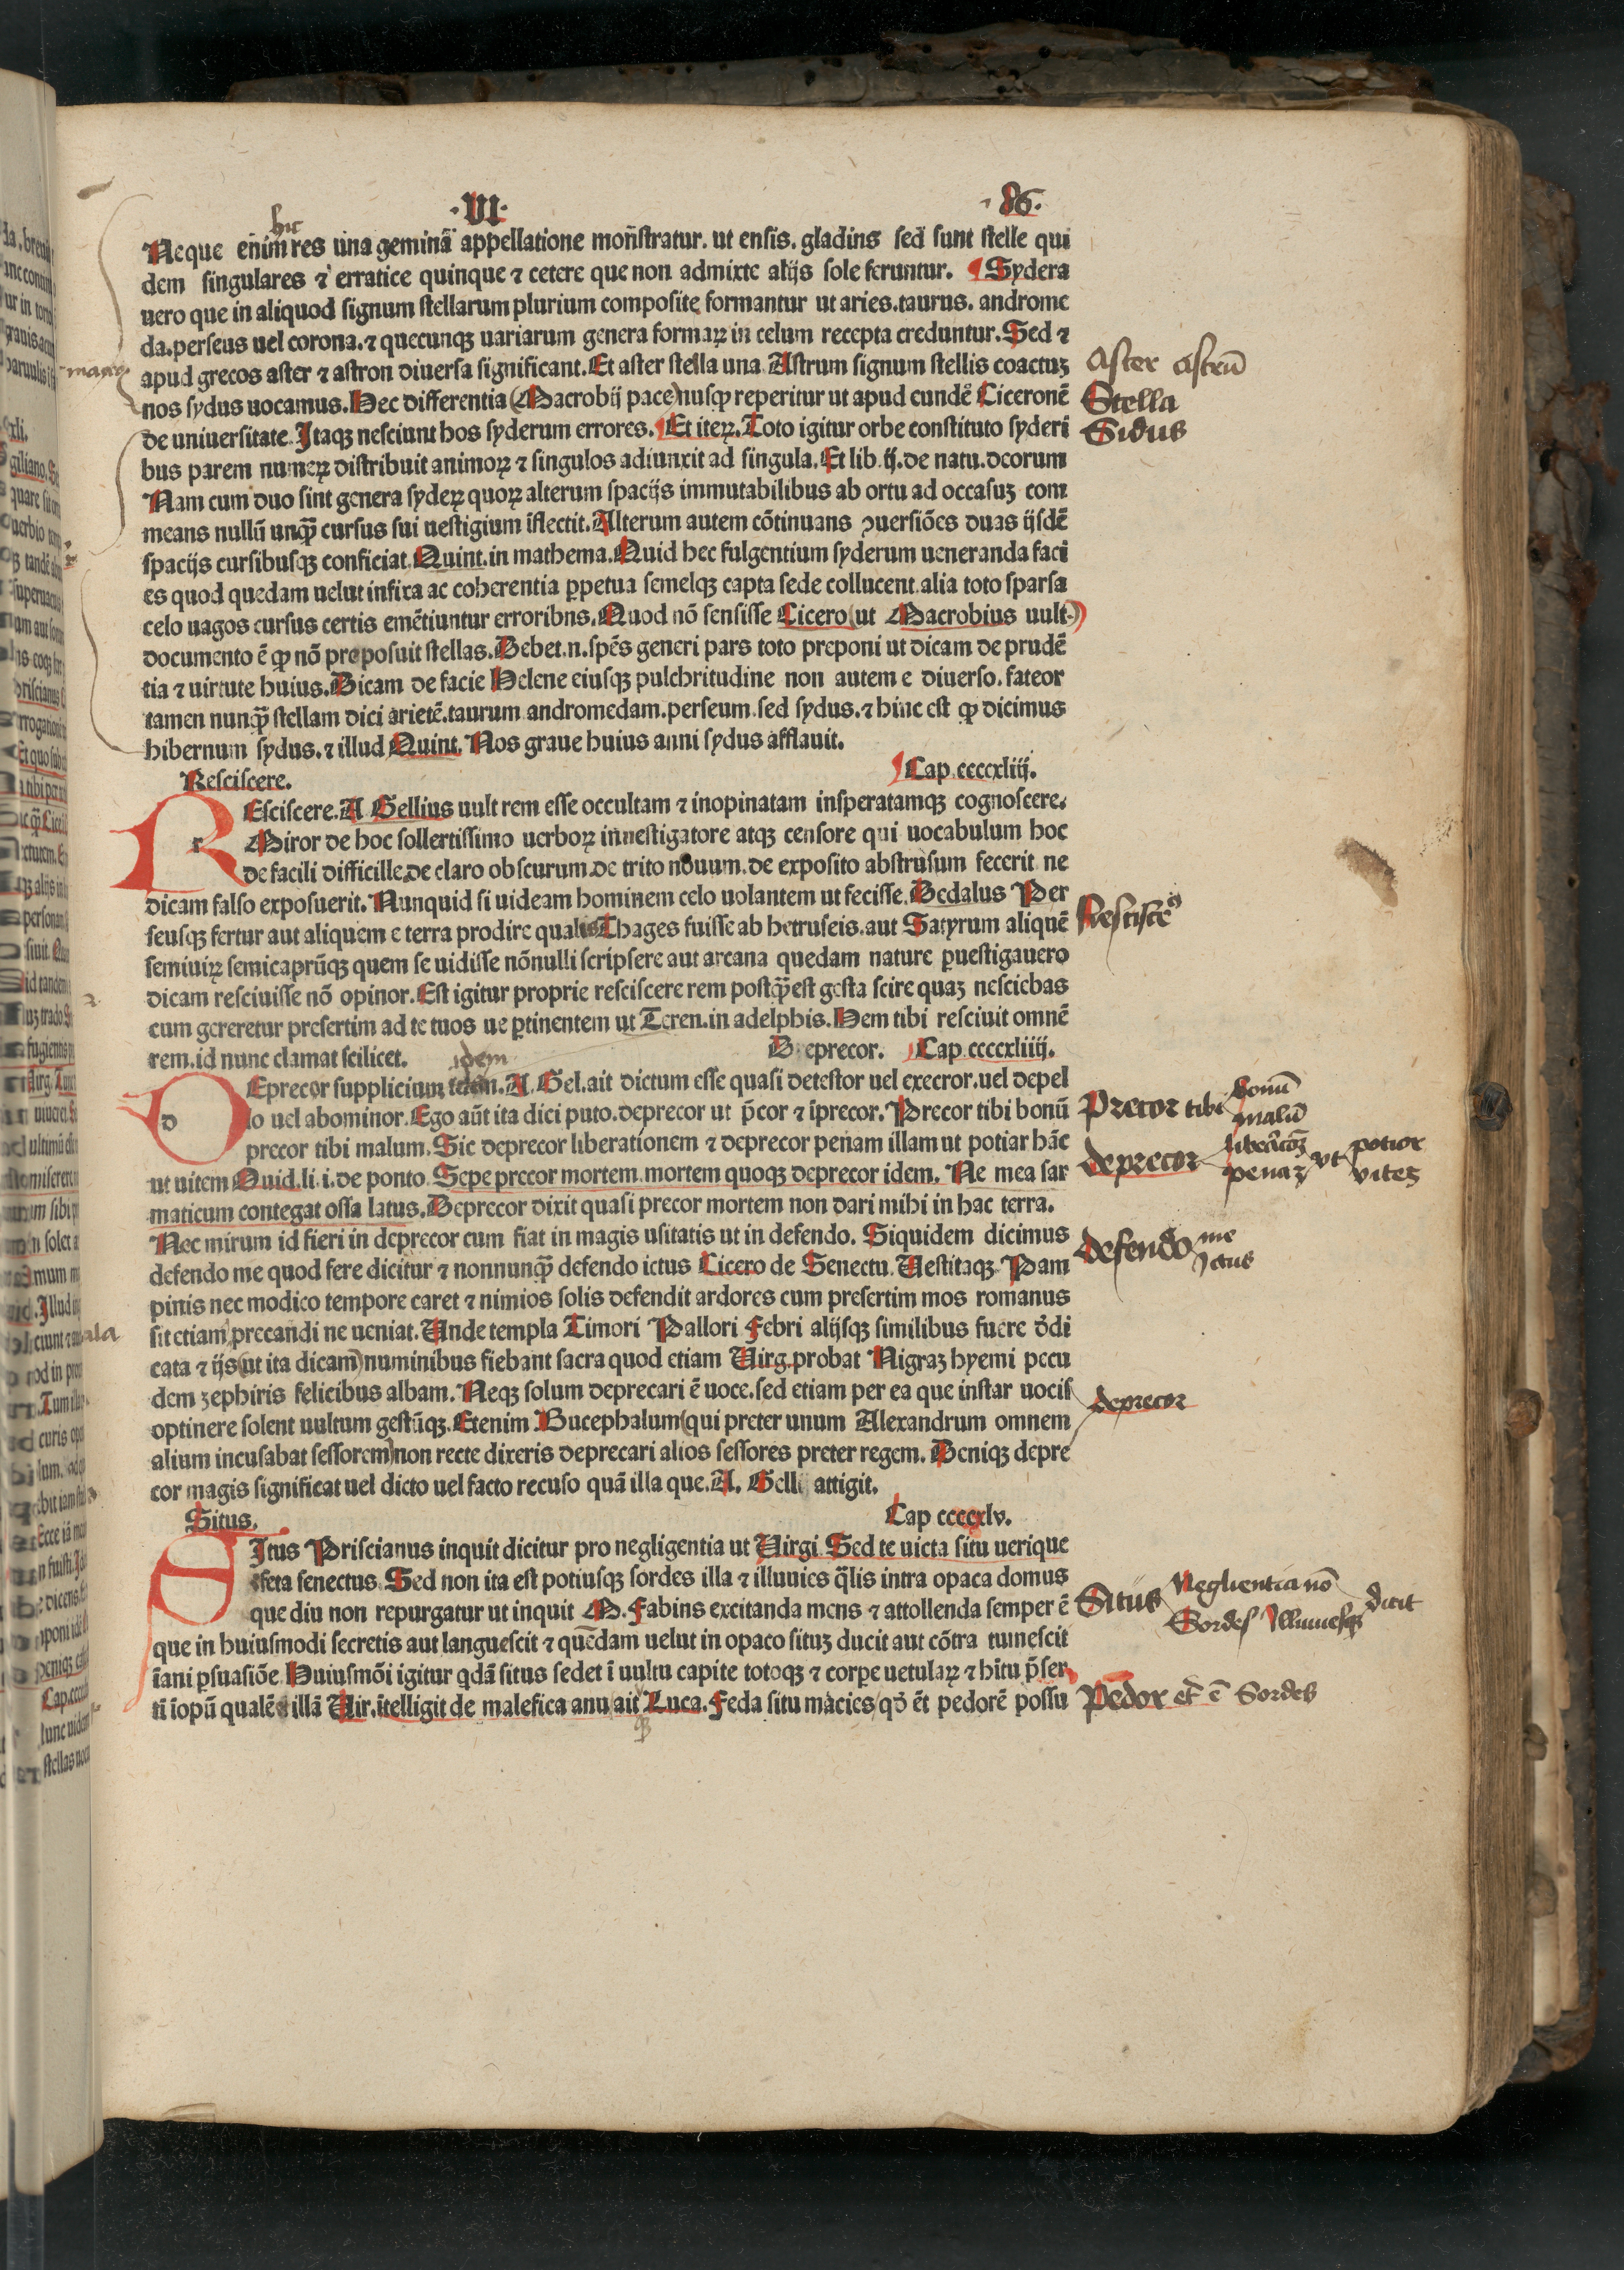 ·VI· ·86·
hic
Neque enim res una geminã appellatione mon̄stratur. ut ensis. gladins sed sunt stelle qui
dem singulares ⁊ erratice quinque ⁊ cetere que non admixte alijs sole feruntur. ¶ Sydera
uero que in aliquod signum stellarum plurium composite formantur ut aries. taurus. androme
da. perseus uel corona. ⁊ quecunqꝫ uariarum genera formaꝝ in celum recepta creduntur. Sed ⁊
apud grecos aster ⁊ astron diuersa significant. Et aster stella una Astrum signum stellis coactuꝫ
nos sydus uocamus. Hec differentia (Macrobij pace) nusꝙ reperitur ut apud eundẽ Ciceronẽ
de uniuersitate. Itaqꝫ nesciunt hos syderum errores. ¶ Et iteꝝ. Toto igitur orbe constituto syderi
bus parem numeꝝ distribuit animoꝝ ⁊ singulos adiunxit ad singula. Et lib. ij. de natu. deorum
Nam cum duo sint genera sydeꝝ quoꝝ alterum spacijs immutabilibus ab ortu ad occasuꝫ com
means nullũ unꝙ̃ cursus sui uestigium ĩflectit. Alterum autem cõtinuans ꝯuersiões duas ijsdẽ
spacijs cursibusqꝫ conficiat. Quint. in mathema. Quid hec fulgentium syderum ueneranda faci
es quod quedam uelut infixa ac coherentia ꝑpetua semelqꝫ capta sede collucent. alia toto sparsa
celo uagos cursus certis emẽtiuntur erroribns. Quod nõ sensisse Cicero (ut Macrobius uult.)
documento ẽ ꝙ nõ preposuit stellas. Debet. n. spẽs generi pars toto preponi ut dicam de prudẽ
tia ⁊ uirtute huius. Dicam de facie Helene eiusqꝫ pulchritudine non autem e diuerso. fateor
tamen nunꝙ̃ stellam dici arietẽ. taurum. andromedam. perseum. sed sydus. ⁊ hinc est ꝙ dicimus
hibernum sydus. ⁊ illud Quint. Nos graue huius anni sydus afflauit.
Resciscere. ¶ Cap. ccccxliij.
REsciscere. A Gellius uult rem esse occultam ⁊ inopinatam insperatamqꝫ cognoscere.
Miror de hoc sollertissimo uerboꝝ innestigatore atqꝫ censore qui uocabulum hoc
de facili difficille. de claro obscurum. de trito nouum. de exposito abstrusum fecerit ne
dicam falso exposuerit. Nunquid si uideam hominem celo uolantem ut fecisse. Dedalus Per
seusqꝫ fertur aut aliquem e terra prodire qualis Thages fuisse ab hetruseis. aut Satyrum aliquẽ
semiuiꝝ semicaprũqꝫ quem se uidisse nõnulli scripsere aut arcana quedam nature ꝑuestigauero
dicam resciuisse nõ opinor. Est igitur proprie resciscere rem postꝙ̃ est gesta scire quaꝫ nesciebas
cum gereretur presertim ad te tuos ue ꝑtinentem ut Teren. in adelphis. Hem tibi resciuit omnẽ
rem. id nunc clamat scilicet. idem Deprecor. Cap ccccxliiij.
DEprecor supplicium. A. Gel. ait dictum esse quasi detestor uel execror. uel depel
lo uel abominor. Ego aũt ita dici puto. deprecor ut p̃cor ⁊ ĩprecor. Precor tibi bonũ
precor tibi malum. Sic deprecor liberationem ⁊ deprecor penam illam ut potiar hãc
ut uitem Ouid. li. i. de ponto. Sepe precor mortem. mortem quoqꝫ deprecor idem. Ne mea sar
maticum contegat ossa latus. Deprecor dixit quasi precor mortem non dari mihi in hac terra.
Nec mirum id fieri in deprecor cum fiat in magis usitatis ut in defendo. Siquidem dicimus
defendo me quod fere dicitur ⁊ nonnunꝙ̃ defendo ictus Cicero de Senectu. Uestitaqꝫ Pam
pinis nec modico tempore caret ⁊ nimios solis defendit ardores cum presertim mos romanus
sit etiam precandi ne ueniat. Unde templa Timori Pallori Febri alijsqꝫ similibus fuere ðdi
cata ⁊ ijs (ut ita dicam) numinibus fiebant sacra quod etiam Uirg. probat Nigraꝫ hyemi pecu
dem zephiris felicibus albam. Neqꝫ solum deprecari ẽ uoce. sed etiam per ea que instar uocis
optinere solent uultum gestũqꝫ. Etenim Bucephalum (qui preter unum Alexandrum omnem
alium incusabat sessorem) non recte dixeris deprecari alios sessores preter regem. Deniqꝫ depre
cor magis significat uel dicto uel facto recuso quã illa que. A. Gelli attigit.
Situs. Cap ccccxlv.
SItus Priscianus inquit dicitur pro negligentia ut Uirgi. Sed te uicta situ uerique
effeta senectus. Sed non ita est potiusqꝫ sordes illa ⁊ illuuies q̃lis intra opaca domus
que diu non repurgatur ut inquit M. Fabins excitanda mens ⁊ attollenda semper ẽ
que in huiusmodi secretis aut languescit ⁊ quẽdam uelut in opaco situꝫ ducit aut cõtra tumescit
ĩani ꝑsuasiõe. Huiusmõi igitur qdã situs sedet ĩ uultu capite totoqꝫ ⁊ corꝑe uetulaꝝ ⁊ hĩtu p̃ser
ti ĩopũ qualẽ illã Uir. ĩtelligit de malefica anu ait Luca. Feda situ macies qð ẽt pedorẽ possu
Aster Astrũ
Stella
Sidus
Rescisce
Precor tibi bonũ
malũ
deprecor
penaꝫ vt potior
vites
defendo me
Ictus
deprecor
Situs Neglientia nõ
Sordes Illuuiesqꝫ dicit
Pedor etc̃ ẽ Sordes